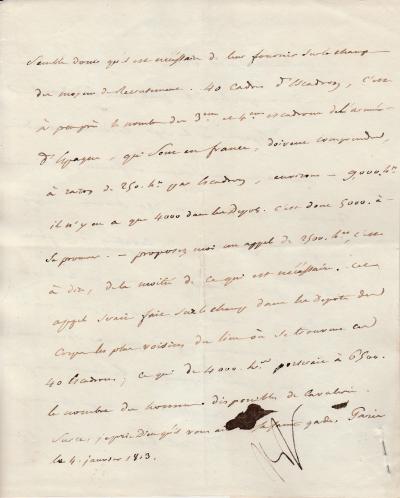 Semble donc qu'il est nécessaire de leur fournir sur le champ
des moyens de Recrutement. 40 cadres d'Escadron, c'est
à peu près le nombre des 3eme et 4eme escadrons de l'armée
d'Espagne, qui sont en france, doivent comprendre,
à raison de 250. hes par Escadron, environ - 9,000. hes
il n'y en a que 4000 dans les Depots. c'est donc 5000. à
se procurer. - proposez moi un appel de 2500. hes, c'est
à dire, de la moitié de ce qui est nécéssaire. cet
appel serait fait sur le champ dans les depots des
Corps les plus voisins du lieu où se trouvent ces
40 Escadrons; ce qui de 4000. hes porterait à 6500.
le nombre des hommes disponibles de Cavalerie.
Sur ce, je prie Dieu qu'il vous ait sainte garde. Paris
le 4. janvier 1813.